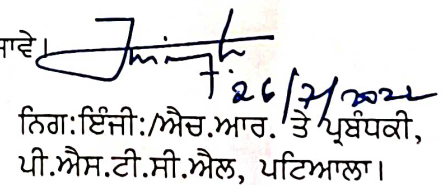 ਜਾਵੇ।
26/7/2022
ਨਿਗ:ਇੰਜੀ:/ਐਚ.ਆਰ. ਤੇ ਪ੍ਰਬੰਧਕੀ,
ਪੀ.ਐਸ.ਟੀ.ਸੀ.ਐਲ, ਪਟਿਆਲਾ।